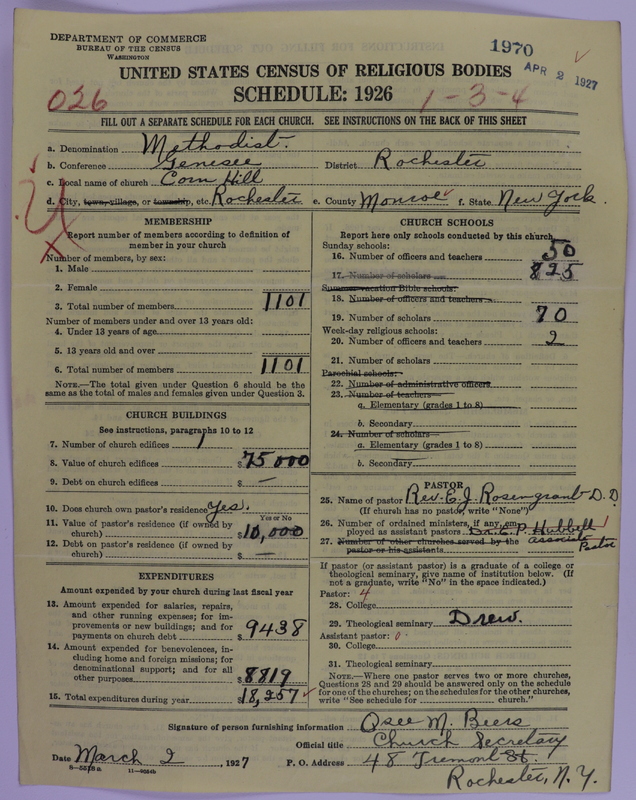 DEPARTMENT OF COMMERCE
BUREAU OF THE CENSUS
WASHINGTON
1970
APR 2 1927
UNITED STATES CENSUS OF RELIGIOUS BODIES
SCHEDULE: 1926
026
1-3-4
FILL OUT A SEPARATE SCHEDULE FOR EACH CHURCH. SEE INSTRUCTIONS ON THE BACK OF THIS SHEET
a. Denomination Methodist.
b. Conference Genesee District Rochester
c. Local name of church Corn Hill
d. City, town, village, or township, etc. Rochester e. County Monroe f. State New York.
MEMBERSHIP
Report number of members according to definition of
member in your church
Number of members, by sex:
1. Male
2. Female
3. Total number of members 1101
Number of members under and over 13 years old:
4. Under 13 years of age
5. 13 years old and over
6. Total number of members 1101
NOTE.—The total given under Question 6 should be the
same as the total of males and females given under Question 3.
CHURCH BUILDINGS
See instructions, paragraphs 10 to 12
7. Number of church edifices 1
8. Value of church edifices $75000
9. Debt on church edifices $ —
10. Does church own pastor's residence yes.
Yes or No
11. Value of pastor's residence (if owned by
church) $10,000
12. Debt on pastor's residence (if owned by
church) $ —
EXPENDITURES
Amount expended by your church during last fiscal year
13. Amount expended for salaries, repairs,
and other running expenses; for im-
provements or new buildings; and for
payments on church debt $9438
14. Amount expended for benevolences, in-
cluding home and foreign missions; for
denominational support; and for all
other purposes $8819
15. Total expenditures during year $18,257
CHURCH SCHOOLS
Report here only schools conducted by this church
Sunday schools:
16. Number of officers and teachers 50
17. Number of scholars 825
Summer vacation Bible schools:
18. Number of officers and teachers
19. Number of scholars 70
Week-day religious schools:
20. Number of officers and teachers 2
21. Number of scholars
Parochial schools:
22. Number of administrative officers
23. Number of teachers—
a. Elementary (grades 1 to 8)
b. Secondary
24. Number of scholars—
a. Elementary (grades 1 to 8)
b. Secondary
PASTOR
25. Name of pastor Rev. E. J. Rosengrant D.D.
(If church has no pastor, write "None")
26. Number of ordained ministers, if any, em-
ployed as assistant pastors Dr. E. P. Hubbell
27. Number of other churches served by the associate
pastor or his assistants Pastor
If pastor (or assistant pastor) is a graduate of a college or
theological seminary, give name of institution below. (If
not a graduate, write "No" in the space indicated.)
Pastor: 4
28. College
29. Theological seminary Drew.
Assistant pastor: 0
30. College
31. Theological seminary
NOTE.—Where one pastor serves two or more churches,
Questions 28 and 29 should be answered only on the schedule
for one of the churches; on the schedules for the other churches,
write "See schedule for church."
Signature of person furnishing information Osee M. Beers
Official title Church Secretary
Date March 2, 1927 P. O. Address 48 Tremont St.
Rochester, N.Y.